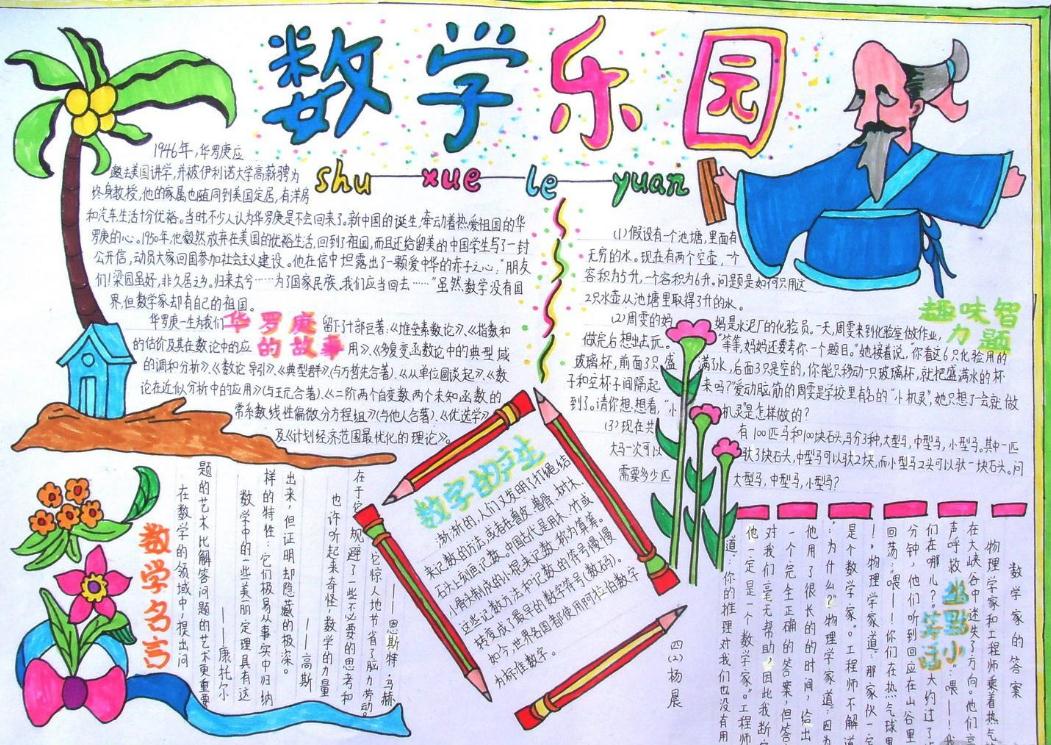 数学乐园
shu xue le yuan
1946年,华罗庚应
邀去美国讲学,并被伊利诺大学高薪聘为
终身教授,他的家属也随同到美国定居,有洋房
和汽车生活十分优裕。当时不少人认为华罗庚是不会回来了。新中国的诞生,牵动着热爱祖国的华
罗庚的心。1950年,他毅然放弃在美国的优裕生活,回到了祖国,而且还给留美的中国学生写了一封
公开信,动员大家回国参加社会主义建设。他在信中坦露出了一颗爱中华的赤子之心:“朋友
们!梁园虽好,非久居之乡,归来去兮……为了国家民族,我们应当回去……”虽然数学没有国
界,但数学家却有自己的祖国。
华罗庚的故事
华罗庚一生为我们留下了部巨著:《堆垒素数论》、《指数和
的估价及其在数论中的应用》、《多复变函数论中的典型域
的调和分析》、《数论导引》、《典型群》(与万哲先合著)、《从单位圆谈起》、《数
论在近似分析中的应用》(与王元合著)、《二阶两个自变数两个未知函数的
常系数线性偏微分方程组》(与他人合著)、《优选学》
及《计划经济范围最优化的理论》。
(1)假设有一个池塘,里面有
无穷的水。现在有两个空壶,一个
容积为5升,一个容积为6升。问题是如何只用这
2只水壶从池塘里取得3升的水。
趣味智力题
(2)周雯的妈妈是水泥厂的化验员。一天,周雯来到化验室做作业,
做完后想出去玩。“等等,妈妈还要考你一个题目。”她接着说,“你看这6只化验用的
玻璃杯,前面3只盛满了水,后面3只是空的,你能只移动一只玻璃杯,就把盛满水的杯
子和空杯子间隔起来吗?”爱动脑筋的周雯是学校里有名的“小机灵”,她只想了一会就做
到了。请你想想看,“小机灵是怎样做的?
(3)现在共有100匹马和100块石头,马分3种,大型马,中型马,小型马。其中一匹
大马一次可以驮3块石头,中型马可以驮2块,而小型马2头可以驮一块石头。问
需要多少匹大型马,中型马,小型马?
数学名言
在数学的领域中,提出问
题的艺术比解答问题的艺术更重要
——康托尔
数学中的一些美丽定理具有这
样的特性:它们极易从事实中归纳
出来,但证明却隐藏的极深。
——高斯
也许听起来奇怪,数学的力量
在于它规避了一些不必要的思考和
它惊人地节省了脑力劳动。
——恩斯特·马赫
数字的产生
渐渐的,人们又发明了打绳结
来记数的方法,或者在兽皮、兽骨、树木、
石头上刻画记数。中国古代是用木、竹或
骨头制成的小棍来记数,称为算筹。
这些记数方法和记数的符号慢慢
转变成了最早的数字符号(数码)。
如今,世界各国都使用阿拉伯数字
为标准数字。
四(2)杨展
数学家的答案
物理学家和工程师乘着热气
在大峡谷中迷失了方向。他们高
声呼救:“喂——!我
们在哪儿?”大约过了
分钟,他们听到回应在山谷里
回荡:“喂——!你们在热气球里
!”物理学家道:“那家伙一定
是个数学家。”工程师不解道
:“为什么?”物理学家道:“因为
他用了很长的的时间,给出
一个完全正确的答案,但答
对我们毫无帮助,因此我断
他一定是一个数学家。”工程师
道:“你的推理对我们也没有用